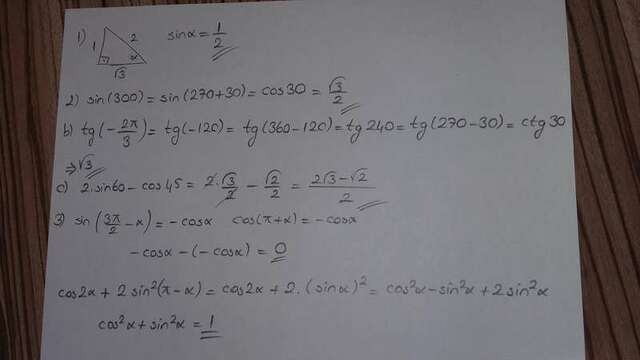 1) 1 2 √3 α sinα = 1/2
2) sin(300) = sin(270+30) = cos30 = √3/2
b) tg(-2π/3) = tg(-120) = tg(360-120) = tg240 = tg(270-30) = ctg30
⇒ √3
c) 2.sin60 - cos45 = 2.√3/2 - √2/2 = 2√3-√2/2
3) sin(3π/2 - α) = -cosα cos(π+α) = -cosα
-cosα - (-cosα) = 0
cos2α + 2sin²(π-α) = cos2α + 2.(sinα)² = cos²α - sin²α + 2sin²α
cos²α + sin²α = 1